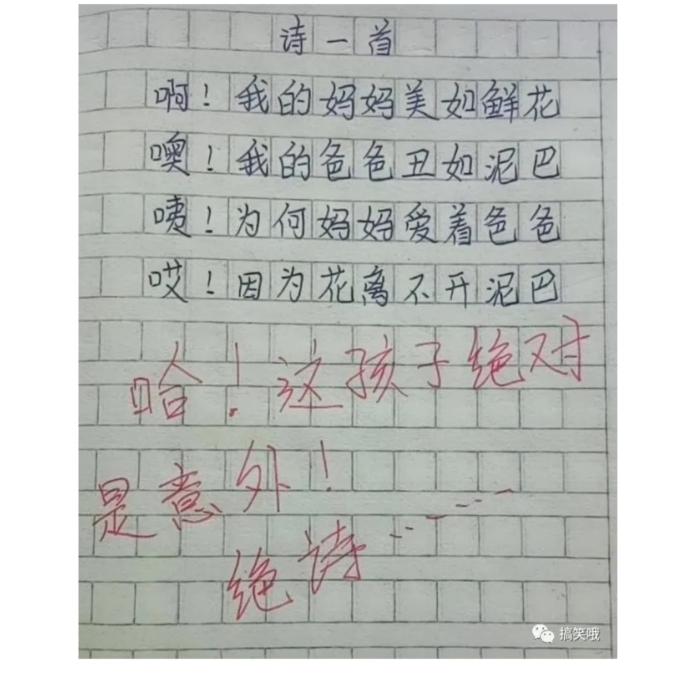 诗一首
啊！我的妈妈美如鲜花
噢！我的爸爸丑如泥巴
咦！为何妈妈爱着爸爸
哎！因为花离不开泥巴
哈！这孩子绝对
是意外！
绝诗……
搞笑哦